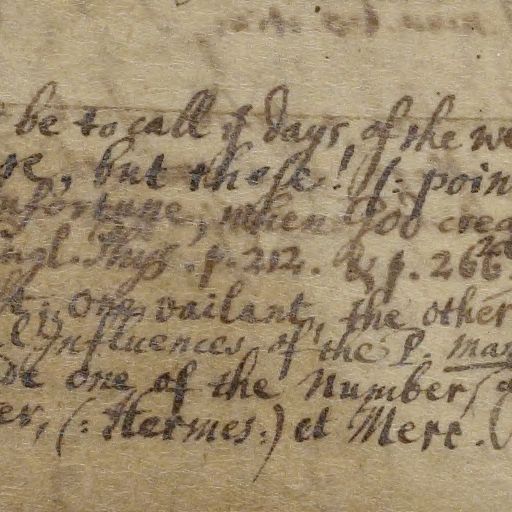 be to call ye days of the we
re, but those! (: poin
nfortune, when God crea
ngl. Phys. p. 212. & p. 266.
ft, one vailant, the other
l Influences of the P. Mar
de one of the Number, (
er, (: Hermes :) et Merc.